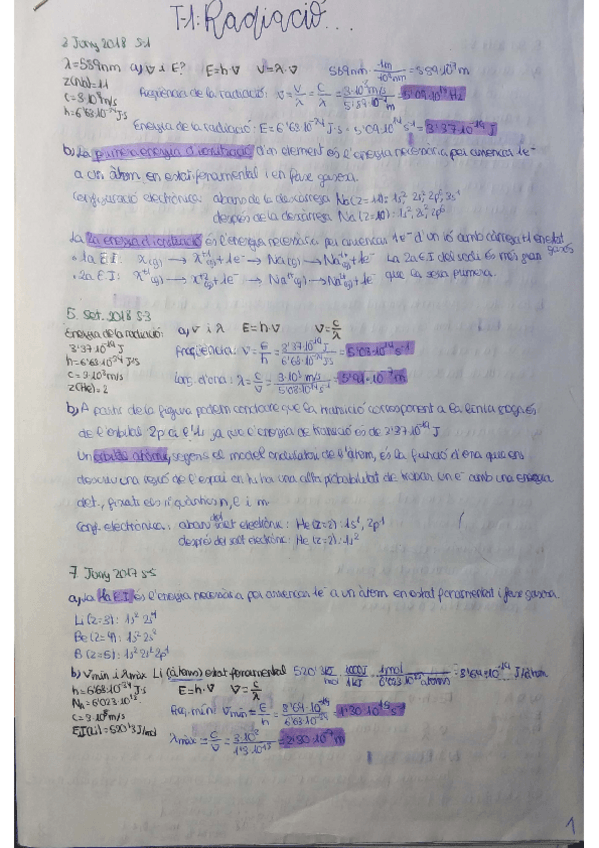 T-1: Radiació...
2 Juny 2018 S:1
λ=589nm a) ν i E? E=h·ν ν=λ·ν 589nm · 1m/10⁹nm = 5'89·10⁻⁷m
Z(Na)=11
c=3·10⁸m/s
h=6'63·10⁻³⁴J·s
Freqüència de la radiació: ν = v/λ = c/λ = 3·10⁸m/s / 5'89·10⁻⁷m = 5'09·10¹⁴ Hz
Energia de la radiació: E=6'63·10⁻³⁴ J·s · 5'09·10¹⁴ s⁻¹ = 3'37·10⁻¹⁹ J
b) La primera energia d'ionització d'un element és l'energia necessària per arrencar 1e⁻
a un àtom en estat fonamental i en fase gasosa.
Configuració electrònica: abans de la descàrrega Na (Z=11): 1s² 2s² 2p⁶ 3s¹
després de la descàrrega Na (Z=10): 1s² 2s² 2p⁶
La 2a energia d'ionització és l'energia necessària per arrencar 1e⁻ d'un ió amb càrrega +1 en estat gasós
• 1a E.I: X(g) → X⁺¹(g) + 1e⁻ → Na(g) → Na⁺(g) + 1e⁻ La 2a EI del sodi és més gran
• 2a E.I: X⁺¹(g) → X⁺²(g) + 1e⁻ → Na⁺(g) → Na²⁺(g) + 1e⁻ que la seva primera.
5. Set. 2018 S:3
Energia de la radiació: a) ν i λ E=h·ν ν=c/λ
3'37·10⁻¹⁹ J
h=6'63·10⁻³⁴ J·s
c=3·10⁸m/s
Z(He)=2
Freqüència: ν = E/h = 3'37·10⁻¹⁹J / 6'63·10⁻³⁴ = 5'08·10¹⁴ s⁻¹
Long. d'ona: λ = c/ν = 3·10⁸ m/s / 5'08·10¹⁴ s⁻¹ = 5'91·10⁻⁷ m
b) A partir de la figura podem concloure que la transició correspon a la línia
de l'orbital 2p a l'1s ja que l'energia de transició és de 3'37·10⁻¹⁹ J
Un orbital atòmic, segons el model ondulatori de l'àtom, és la funció d'ona que ens
descriu una regió de l'espai en hi ha una alta probabilitat de trobar un e⁻ amb una energia
det., fixats els nº quàntics n, l i m
Conf. electrònica: abans del salt electrònic: He (Z=2): 1s¹, 2p¹
després del salt electrònic: He (Z=2): 1s²
7 Juny 2017 S:5
a) La 1a E.I és l'energia necessària per arrencar 1e⁻ a un àtom en estat fonamental i fase gasosa.
Li (Z=3): 1s² 2s¹
Be (Z=4): 1s² 2s²
B (Z=5): 1s² 2s² 2p¹
b) νmín i λmàx Li (àtoms) estat fonamental 520'3 KJ/mol · 1000J/1KJ · 1mol/6'023·10²³ àtoms = 8'64·10⁻¹⁹ J/àtom
h=6'63·10⁻³⁴ J·s E=h·ν ν=c/λ
NA=6'023·10²³
c=3·10⁸m/s
Freq. mín: νmín = E/h = 8'64·10⁻¹⁹ / 6'63·10⁻³⁴ = 1'30·10¹⁵ s⁻¹
λmàx = c/ν = 3·10⁸ / 1'3·10¹⁵ = 2'30·10⁻⁷ m
1